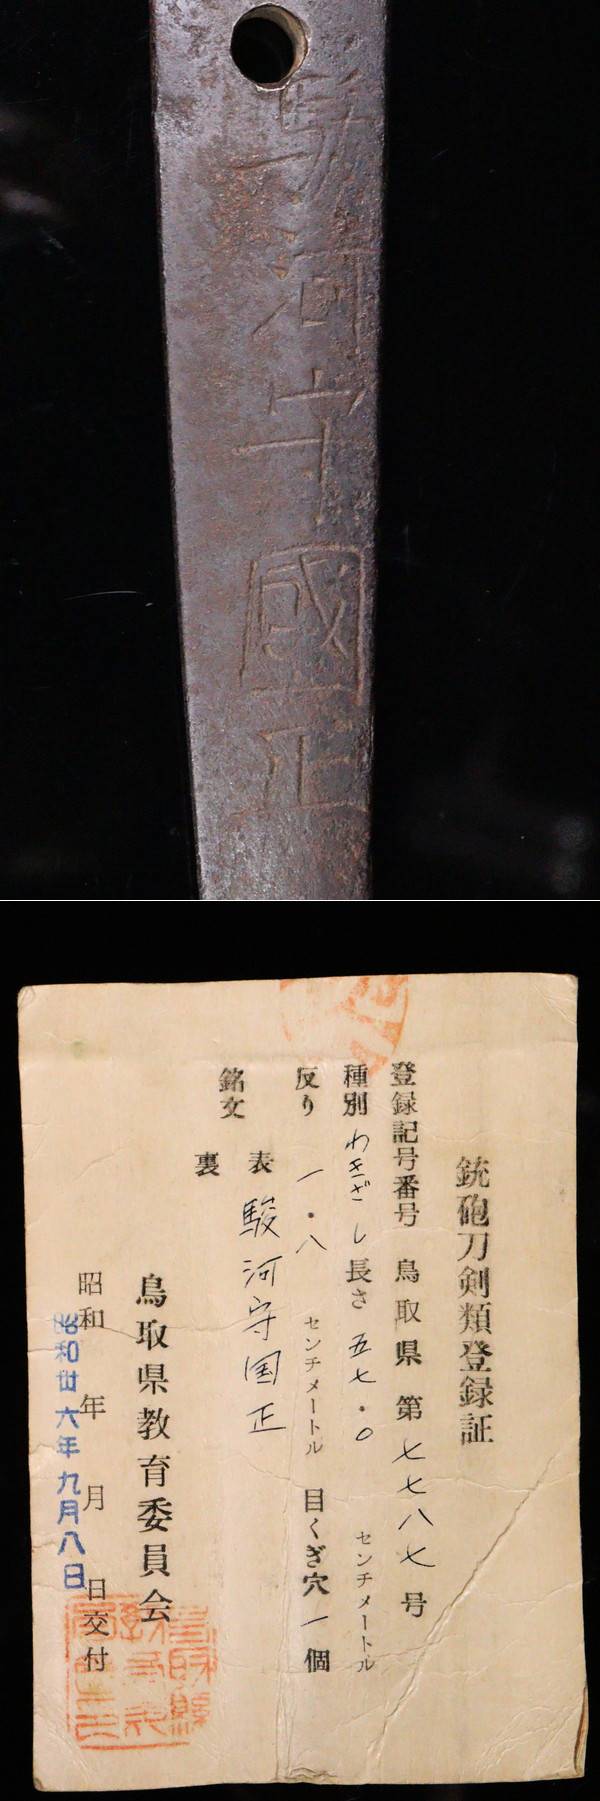 駿河守國正
銃砲刀剣類登録証
登録記号番号 鳥取県 第 七七八七 号
種別 わきざし 長さ 五七・〇 センチメートル
反り 一・八 センチメートル 目くぎ穴 一 個
銘文 表 駿河守国正
裏
鳥取県教育委員会
昭和 年 月 日交付
昭和卅六年九月八日